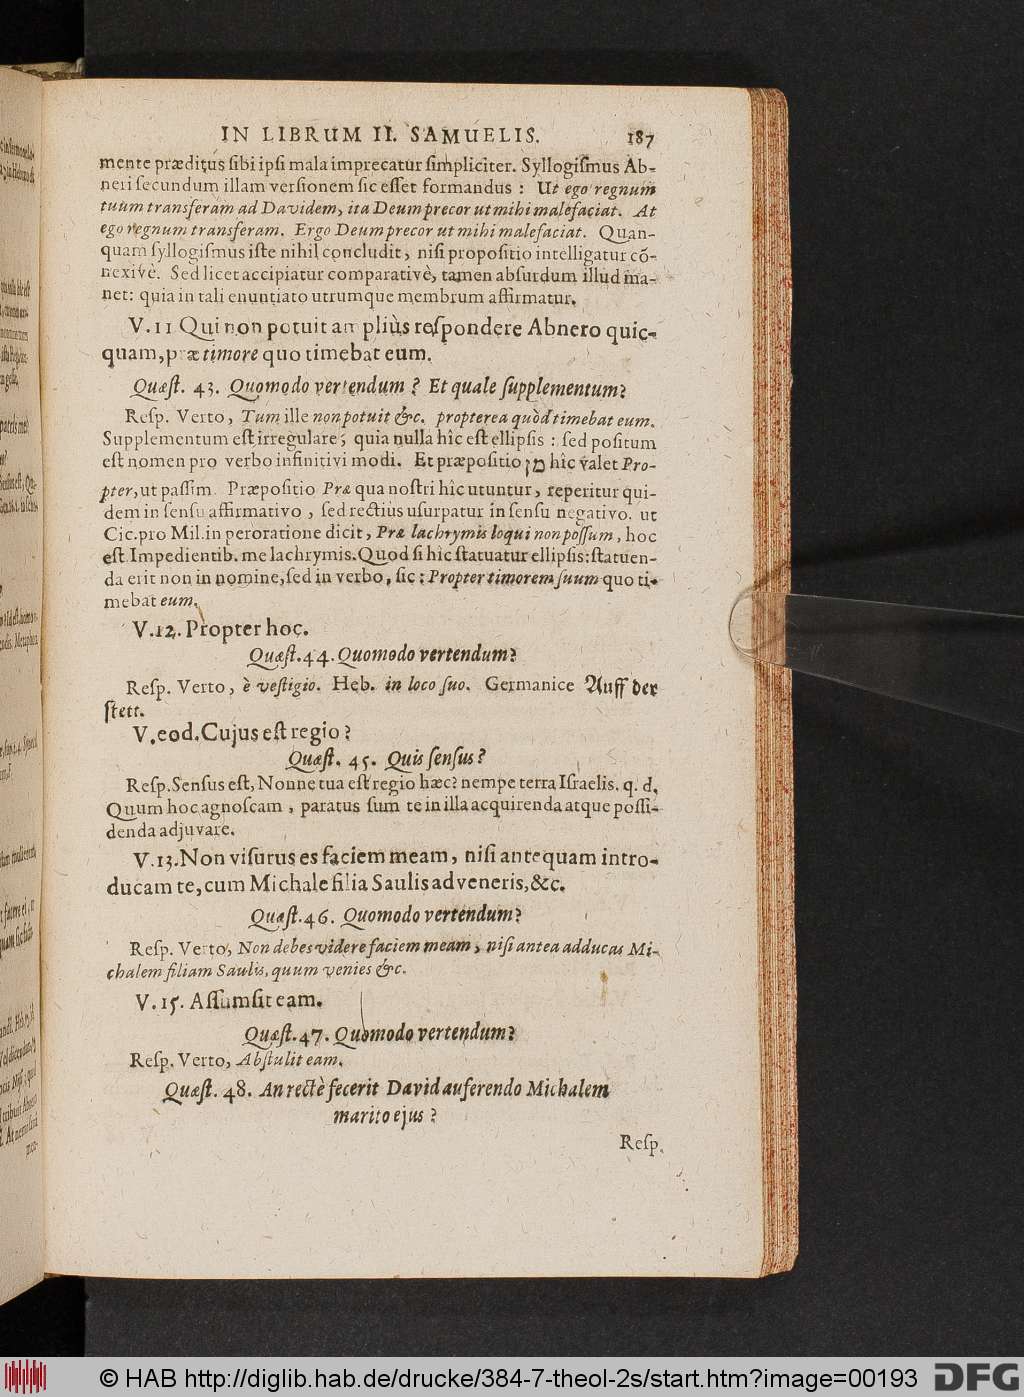 IN LIBRUM II. SAMUELIS. 187
mente præditus sibi ipsi mala imprecatur simpliciter. Syllogismus Ab-
neri secundum illam versionem sic esset formandus : Ut ego regnum
tuum transferam ad Davidem, ita Deum precor ut mihi malefaciat. At
ego regnum transferam. Ergo Deum precor ut mihi malefaciat. Quan-
quam syllogismus iste nihil concludit, nisi propositio intelligatur cõ-
nexivè. Sed licet accipiatur comparativè, tamen absurdum illud ma-
net: quia in tali enuntiato utrumque membrum affirmatur.
V.11 Qui non potuit amplius respondere Abnero quic-
quam, præ timore quo timebat eum.
Quæst. 43. Quomodo vertendum ? Et quale supplementum?
Resp. Verto, Tum ille non potuit &c. propterea quòd timebat eum.
Supplementum est irregulare, quia nulla hîc est ellipsis : sed positum
est nomen pro verbo infinitivi modi. Et præpositio מן hîc valet Pro-
pter, ut passim. Præpositio Præ qua nostri hîc utuntur, reperitur qui-
dem in sensu affirmativo, sed rectius usurpatur in sensu negativo. ut
Cic. pro Mil. in peroratione dicit, Præ lachrymis loqui non possum, hoc
est Impedientib. me lachrymis. Quod si hîc statuatur ellipsis: statuen-
da erit non in nomine, sed in verbo, sic : Propter timorem suum quo ti-
mebat eum.
V.12. Propter hoc.
Quæst. 44. Quomodo vertendum?
Resp. Verto, è vestigio. Heb. in loco suo. Germanice Auff der
stett.
V. eod. Cujus est regio?
Quæst. 45. Quis sensus?
Resp. Sensus est, Nonne tua est regio hæc? nempe terra Israelis. q. d.
Quum hoc agnoscam, paratus sum te in illa acquirenda atque possi-
denda adjuvare.
V.13. Non visurus es faciem meam, nisi antequam intro-
ducam te, cum Michale filia Saulis adveneris, &c.
Quæst. 46. Quomodo vertendum?
Resp. Verto, Non debes videre faciem meam, nisi antea adducas Mi-
chalem filiam Saulis, quum venies &c.
V.15. Assumsit eam.
Quæst. 47. Quomodo vertendum?
Resp. Verto, Abstulit eam.
Quæst. 48. An rectè fecerit David auferendo Michalem
marito ejus ?
Resp.
© HAB http://diglib.hab.de/drucke/384-7-theol-2s/start.htm?image=00193
DFG